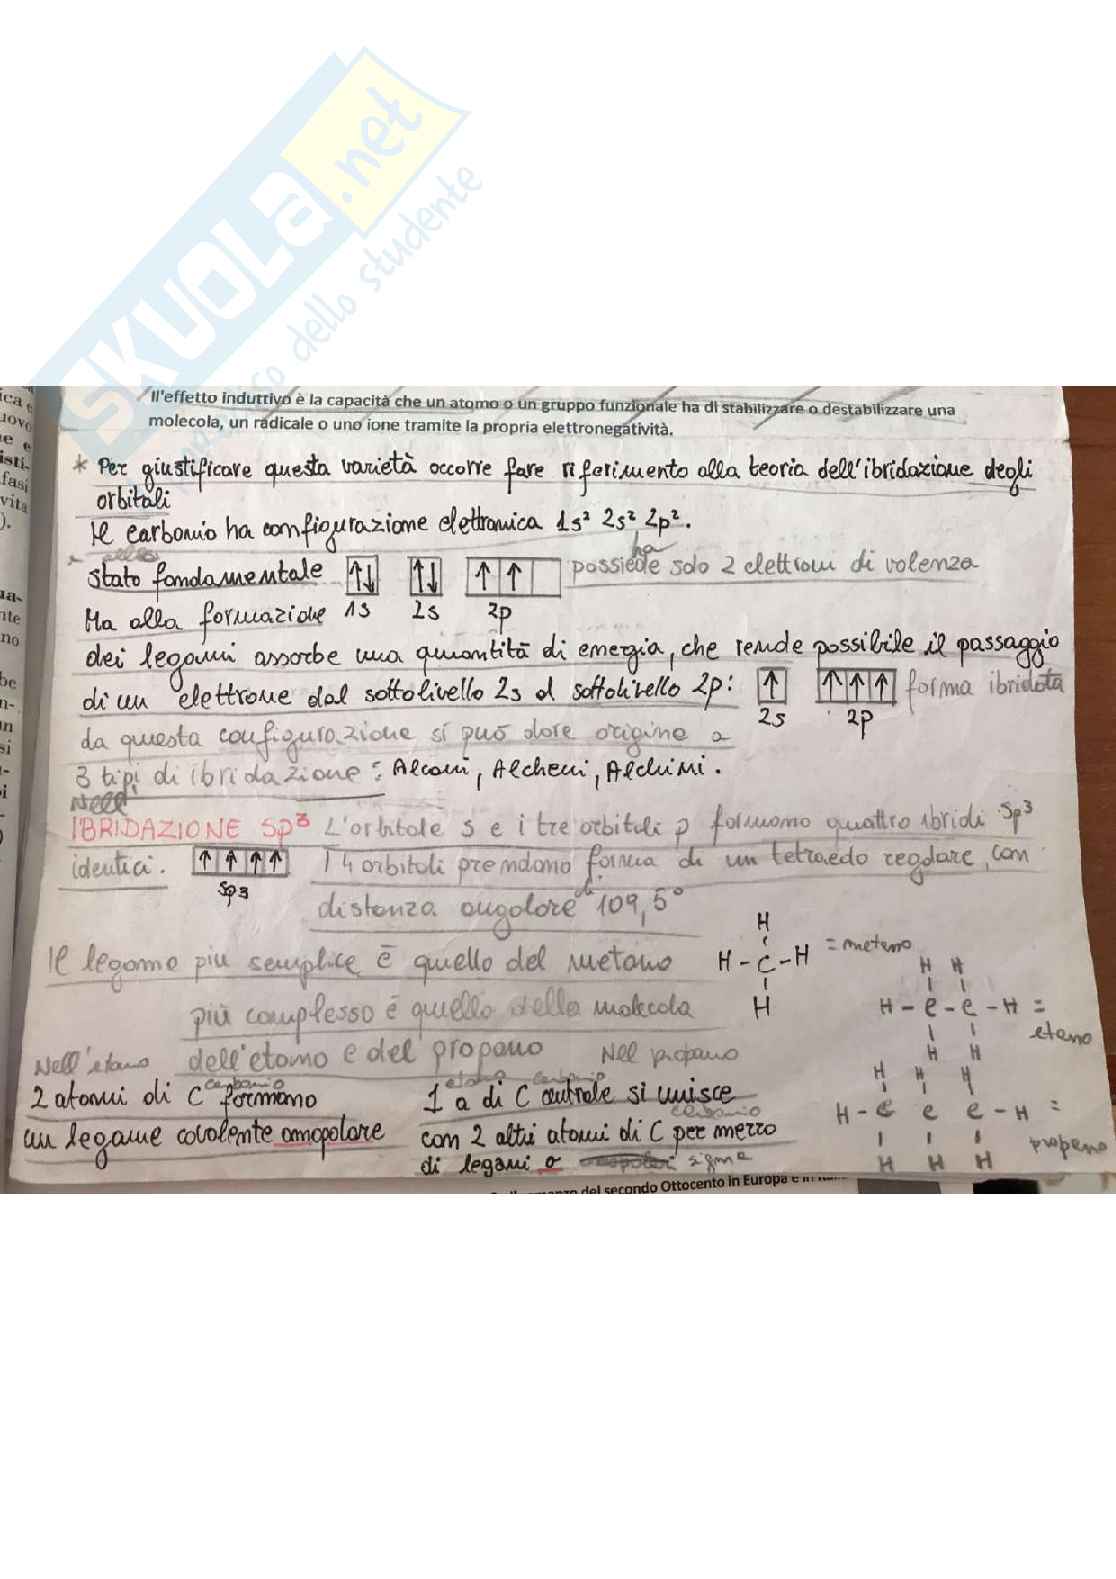 SKUOLA.net
dello studente
Il'effetto induttivo è la capacità che un atomo o un gruppo funzionale ha di stabilizzare o destabilizzare una
molecola, un radicale o uno ione tramite la propria elettronegatività.
* Per giustificare questa varietà occorre fare riferimento alla teoria dell'ibridazione degli
orbitali
Il carbonio ha configurazione elettronica 1s² 2s² 2p².
allo
stato fondamentale possiede ha solo 2 elettroni di valenza
Ma alla formazione 1s 2s 2p
dei legami assorbe una quantità di energia, che rende possibile il passaggio
di un elettrone dal sottolivello 2s al sottolivello 2p: forma ibridata
2s 2p
da questa configurazione si può dare origine a
3 tipi di ibridazione: Alcani, Alcheni, Alchini.
Nell'
IBRIDAZIONE Sp³ L'orbitale s e i tre orbitali p formano quattro ibridi sp³
identici. I 4 orbitali prendono forma di un tetraedo regolare, con
sp3
distanza angolare di 109,5°
Il legame più semplice è quello del metano
H
H - C - H = metano
H
più complesso è quello della molecola
dell'etano e del propano
H H
H - C - C - H = etano
H H
Nell'etano
2 atomi di C carbonio formano
un legame covalente omopolare
Nel propano
1 a di C centrale si unisce
atomo carbonio
carbonio
con 2 altri atomi di C per mezzo
di legami σ sigma
H H H
H - C C C - H = propano
H H H
del secondo Ottocento in Europa e in